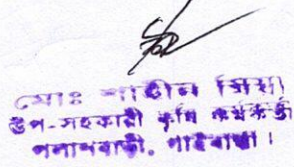 মোঃ শাহীন মিয়া
উপ-সহকারী কৃষি কর্মকর্তা
পলাশবাড়ী, গাইবান্ধা।